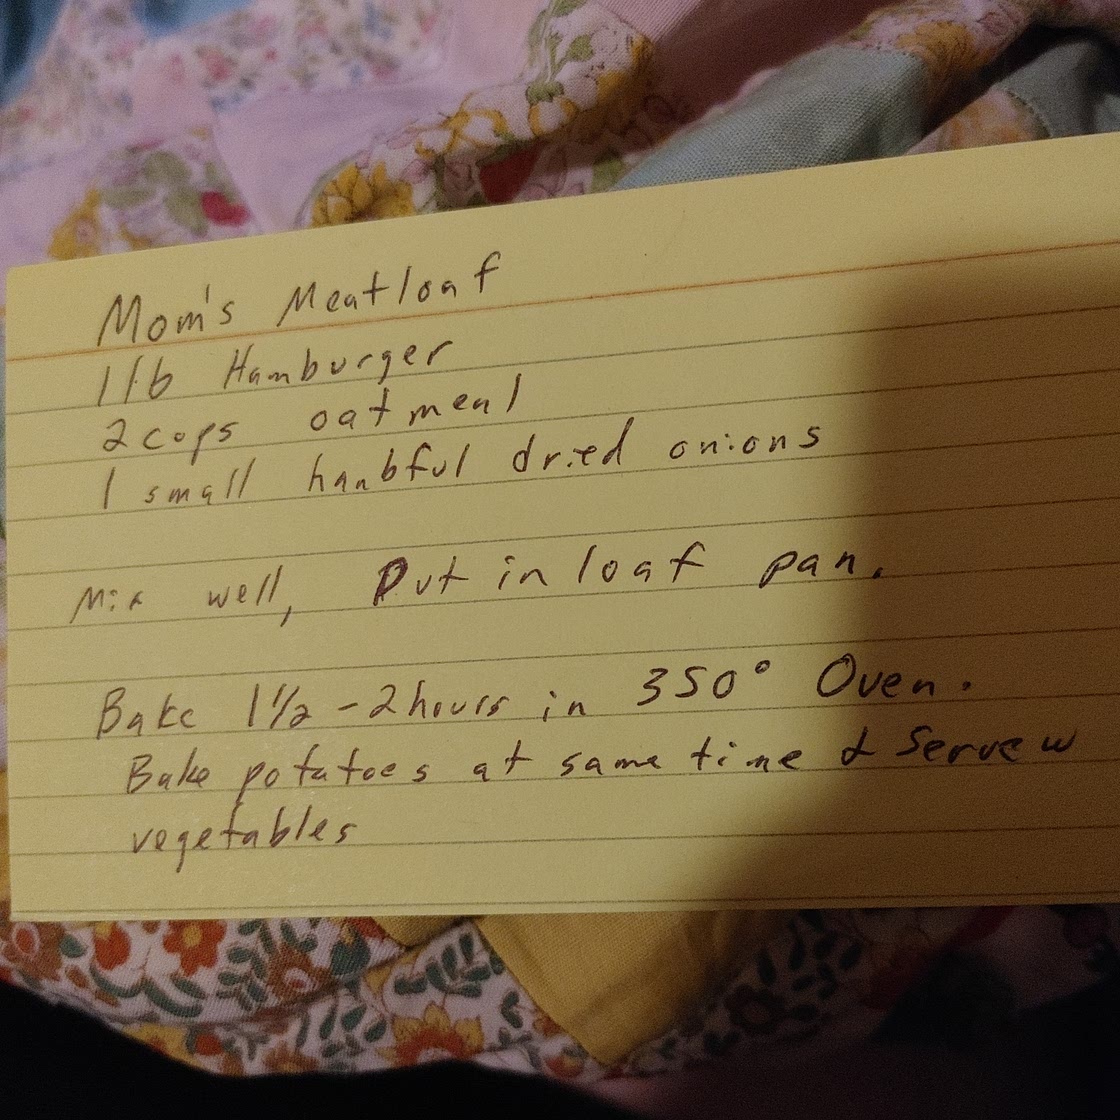 Mom's Meatloaf
1 lb Hamburger
2 cups oatmeal
1 small hanbful dried onions
Mix well, Put in loaf pan.
Bake 1 1/2 - 2 hours in 350° Oven.
Bake potatoes at same time & Serve w
vegetables